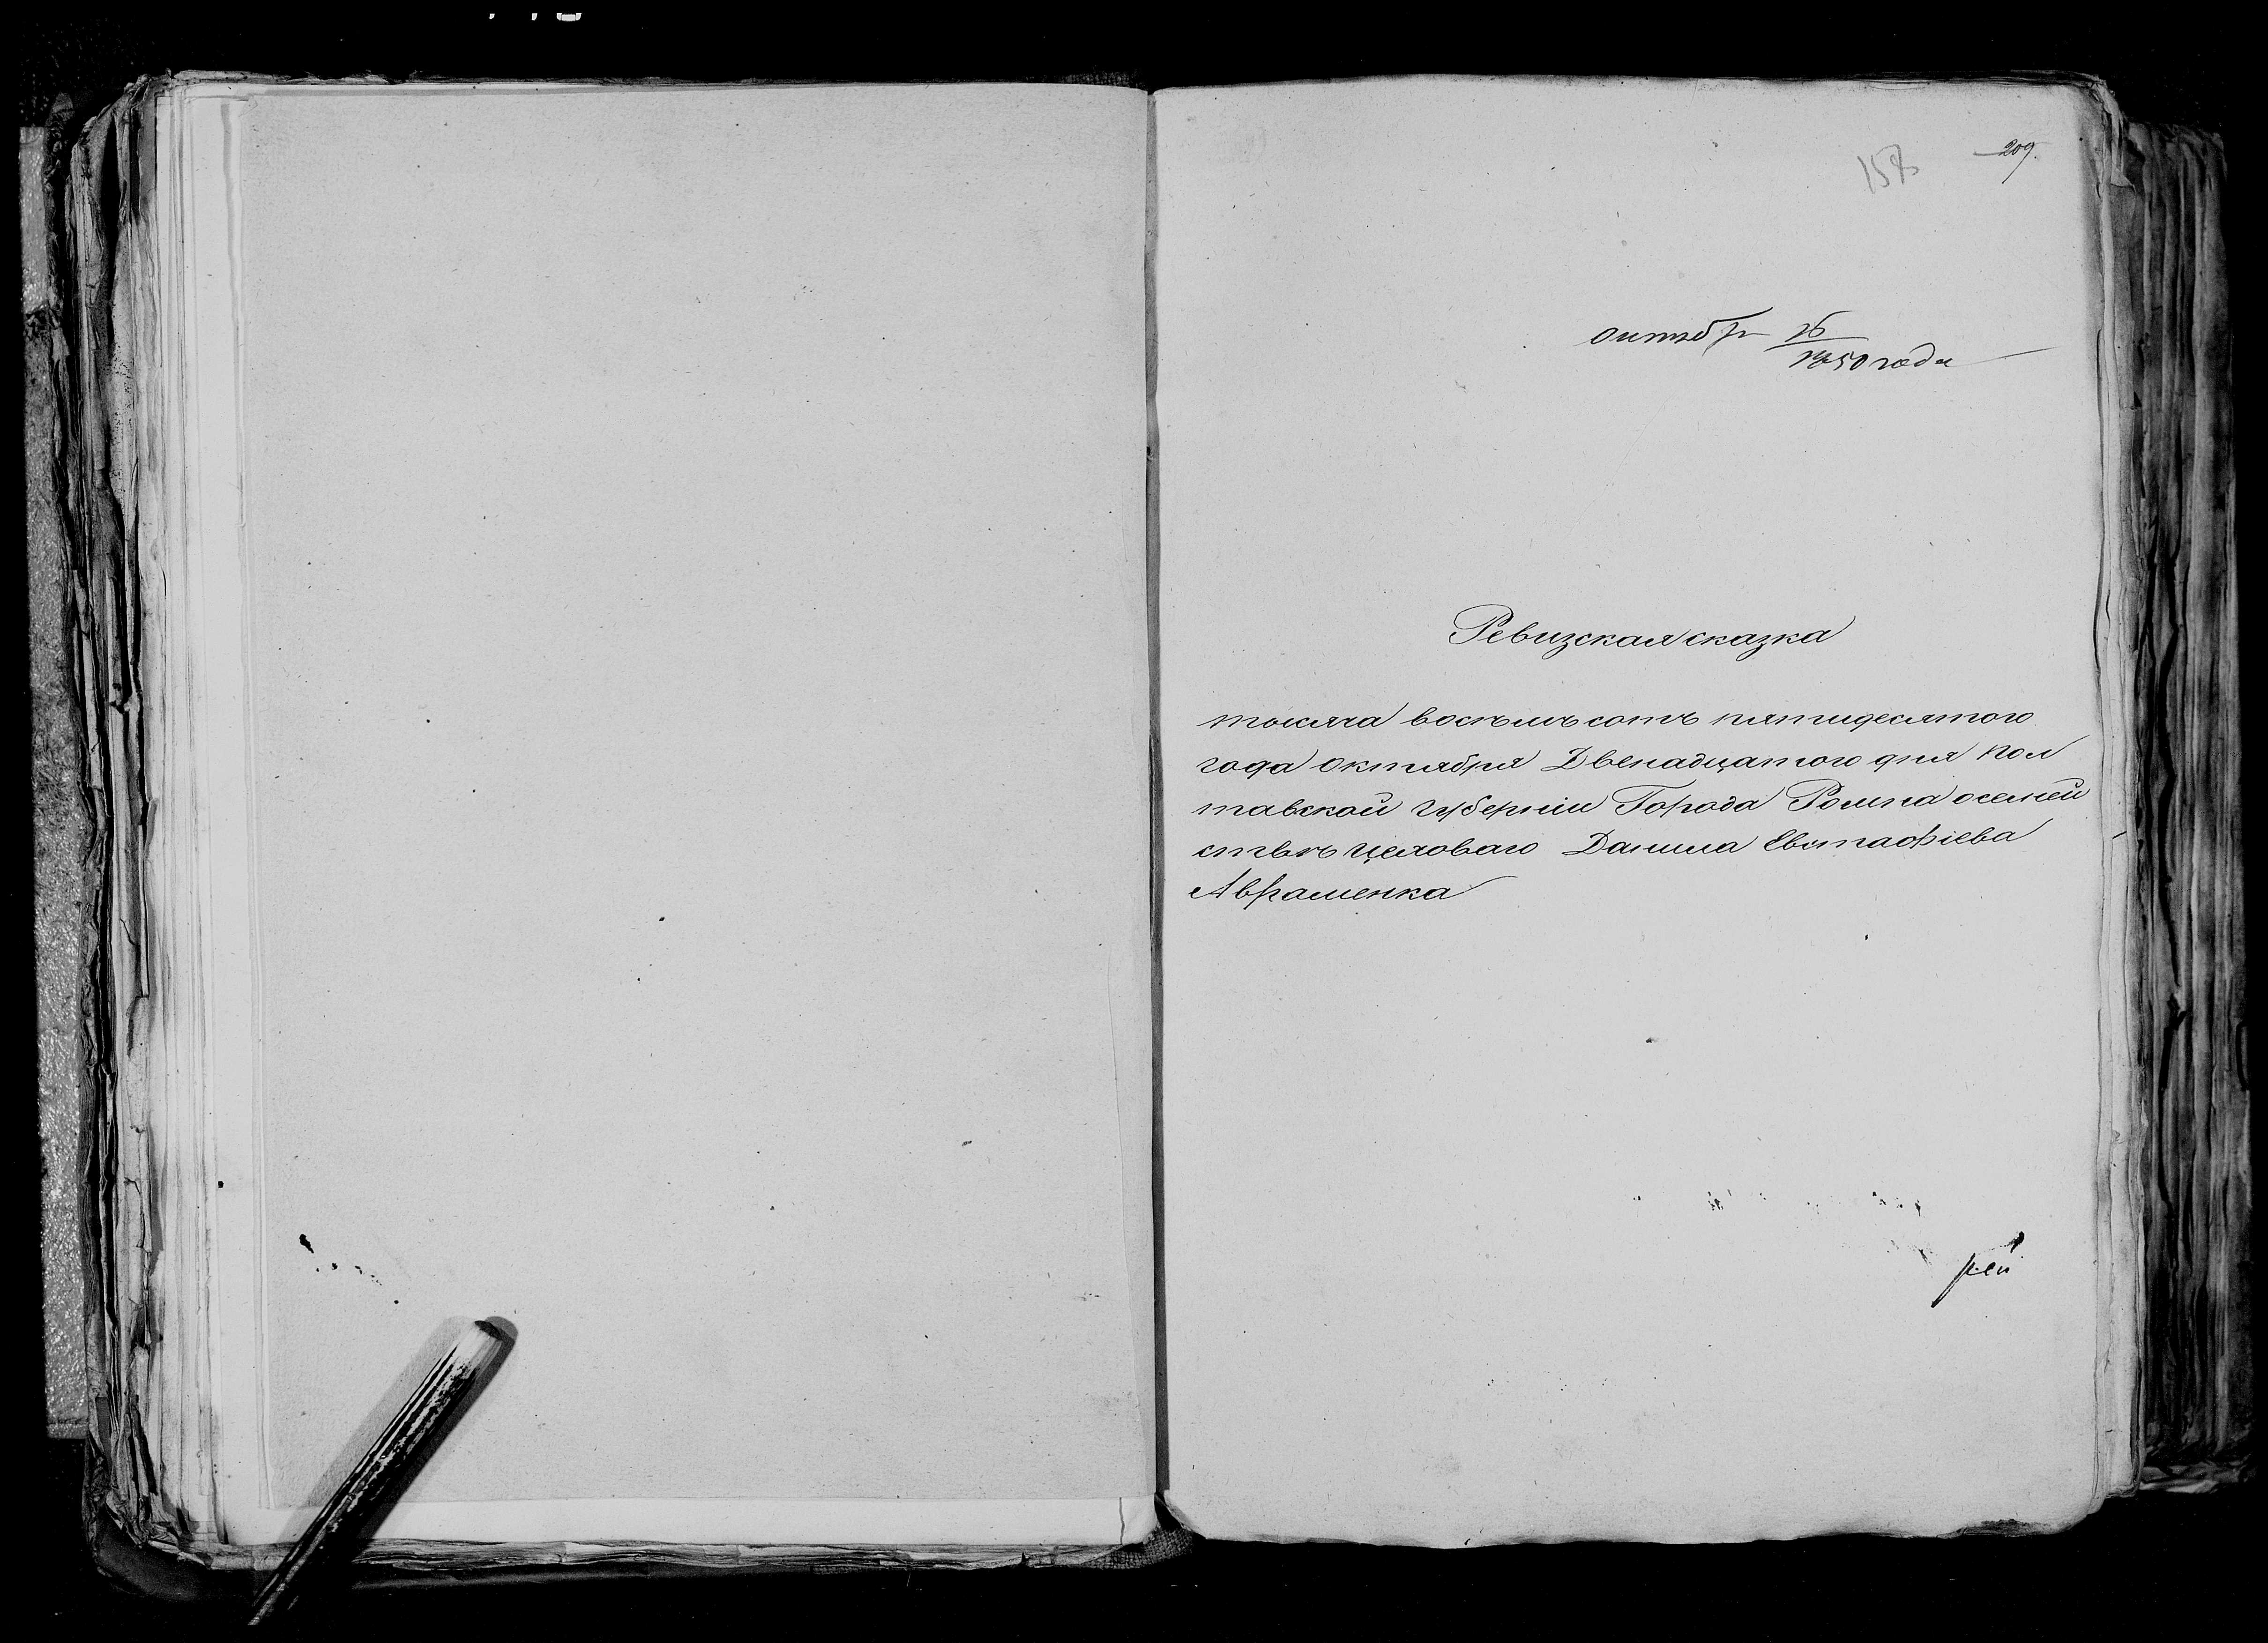 209.
158
октябр 16
1850 года
Ревизская сказка
тысяча восемь сотъ пятидесятого
года октября Двенадцатого дня Пол
тавской Губернiи Города Ромна осемей
ствѣ цеховаго Данила Евстафiева
Авраменка